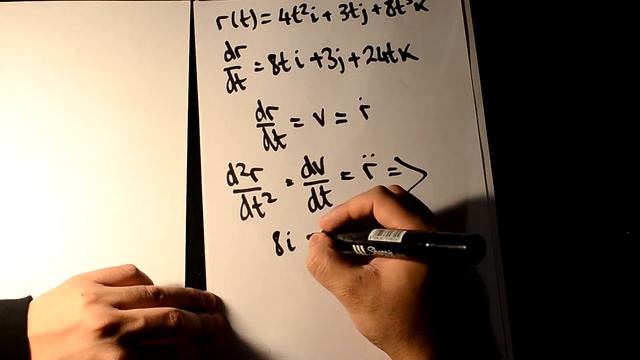 r(t) = 4t²i + 3tj + 8t³k
dr/dt = 8ti + 3j + 24tk
dr/dt = v = ṙ
d²r/dt² = dv/dt = r̈ =>
8i
Sharpie